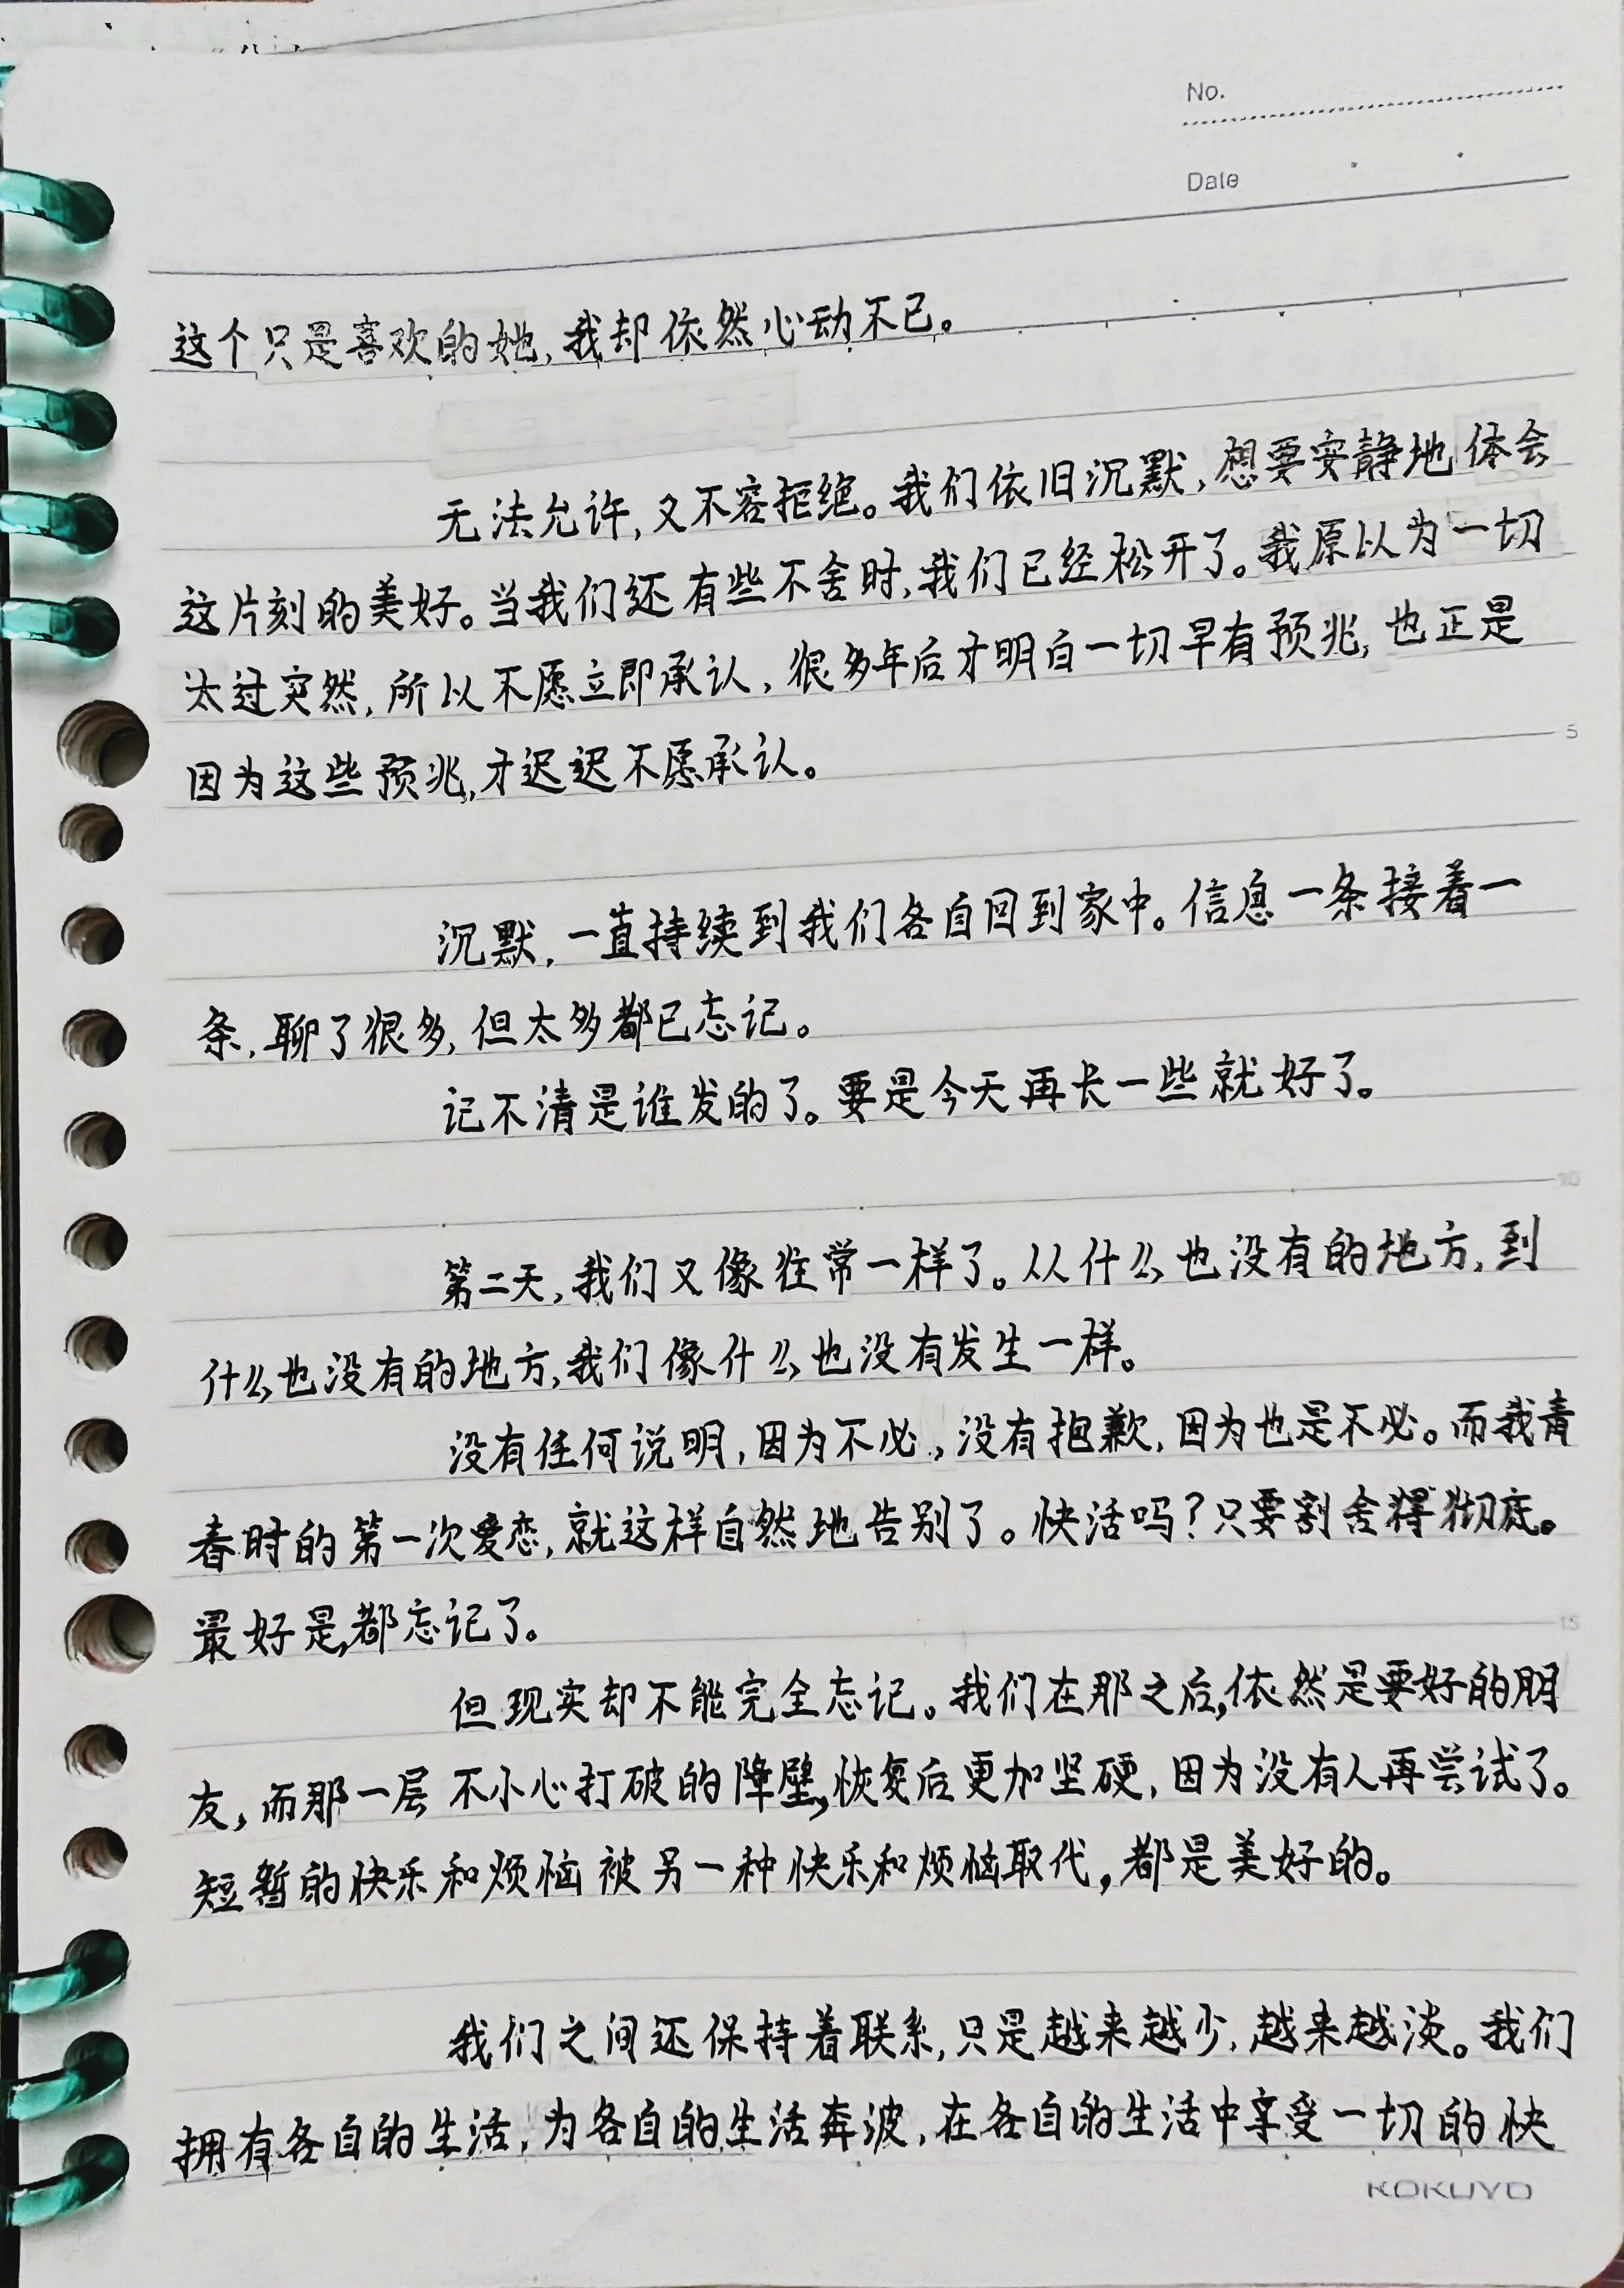 No.
Date
这个只是喜欢的她,我却依然心动不已。
无法允许,又不容拒绝。我们依旧沉默,想要安静地体会
这片刻的美好。当我们还有些不舍时,我们已经松开了。我原以为一切
太过突然,所以不愿立即承认,很多年后才明白一切早有预兆,也正是
因为这些预兆,才迟迟不愿承认。
5
沉默,一直持续到我们各自回到家中。信息一条接着一
条,聊了很多,但太多都已忘记。
记不清是谁发的了。要是今天再长一些就好了。
10
第二天,我们又像往常一样了。从什么也没有的地方,到
什么也没有的地方,我们像什么也没有发生一样。
没有任何说明,因为不必,没有抱歉,因为也是不必。而我青
春时的第一次爱恋,就这样自然地告别了。快活吗?只要割舍得彻底。
最好是,都忘记了。
15
但现实却不能完全忘记。我们在那之后,依然是要好的朋
友,而那一层不小心打破的障壁,恢复后更加坚硬,因为没有人再尝试了。
短暂的快乐和烦恼被另一种快乐和烦恼取代,都是美好的。
我们之间还保持着联系,只是越来越少,越来越淡。我们
拥有各自的生活,为各自的生活奔波,在各自的生活中享受一切的快
KOKUYO